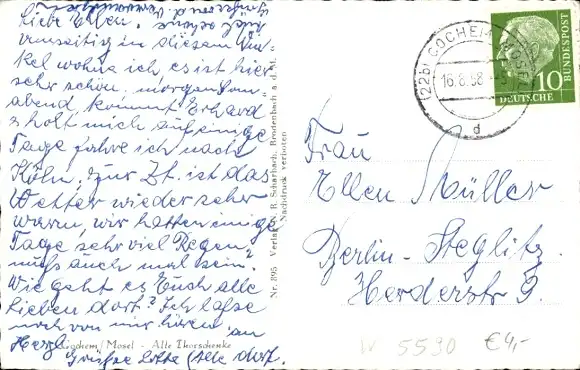 Liebe Ellen.
umseitig in diesem Win-
kel wohne ich, es ist hier
sehr schön. morgen
abend kommt Erhard
holt mich auf einige
Tage fahre ich nach
Köln. zur Zt. ist das
Wetter wieder sehr
warm, wir hatten einige
Tage sehr viel Regen,
muß auch mal sein.
Wie geht es Euch alle
Lieben dort? Ich lasse
noch von mir hören
Herzl.
Grüße Lotte
Cochem/Mosel - Alte Thorschenke
Nr. 895 Verlag R. Scharbach, Brodenbach a. d. Mosel
Nachdruck verboten
(22b) COCHEM (MOSEL)
16.8.58
d
DEUTSCHE BUNDESPOST
10
Frau
Ellen Müller
Berlin-Steglitz.
Herderstr 9.
W 5590 €4,-